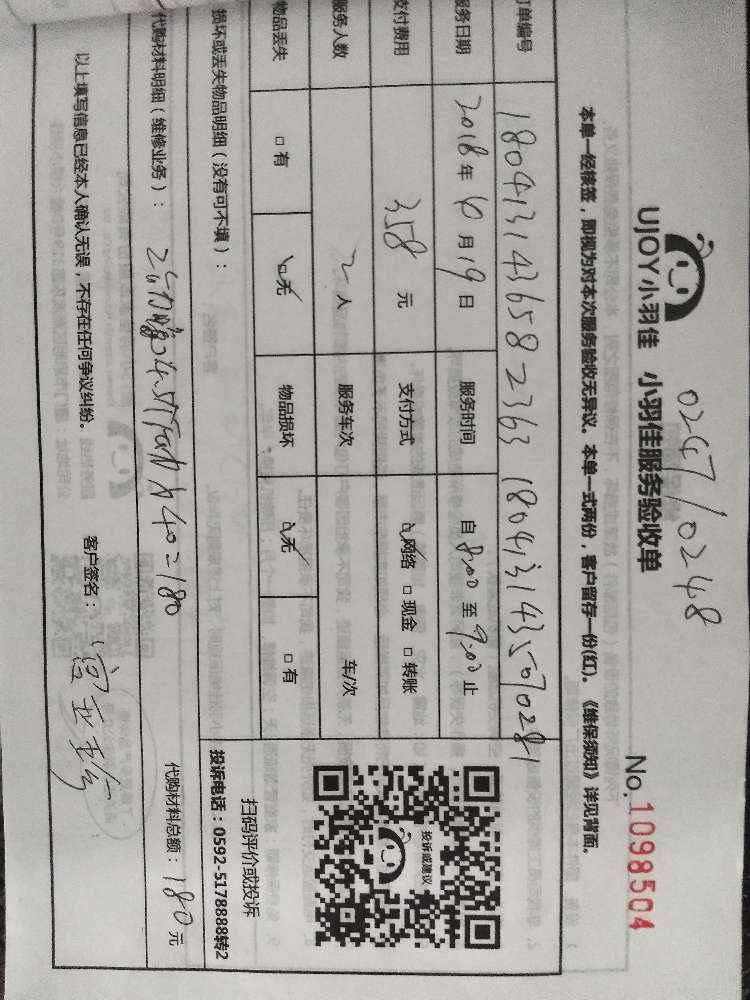 0247/0248
UJOY小羽佳 小羽佳服务验收单
No.1098504
本单一经核签，即视为对本次服务验收无异议。本单一式两份，客户留存一份(红)。《维保须知》详见背面。
订单编号 1804131436582363 1804131435070281
服务日期 2018年 6月19日 服务时间 自8:00至9:00止
支付费用 358元 支付方式 ☑网络 □现金 □转账
服务人数 2人 服务车次 车/次
物品丢失 □有 ☑无 物品损坏 ☑无 □有
损坏或丢失物品明细（没有可不填）：
投诉或建议
扫码评价或投诉
投诉电话：0592-5178888转2
代购材料明细（维修业务）： 40=180
代购材料总额：180元
以上填写信息已经本人确认无误，不存在任何争议纠纷。
客户签名：